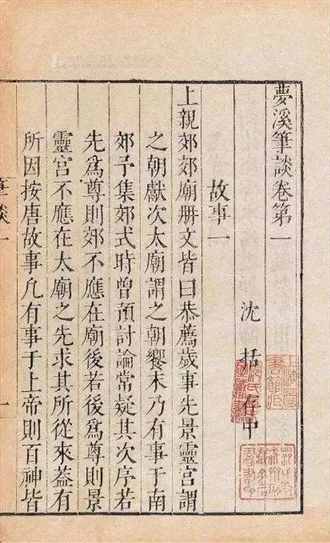 夢溪筆談卷第一
沈括存中
故事一
上親郊郊廟册文皆曰恭薦歲事先景靈宮謂
之朝獻次太廟謂之朝饗末乃有事于南
郊予集郊式時曾預討論常疑其次序若
先爲尊則郊不應在廟後若後爲尊則景
靈宮不應在太廟之先求其所從來葢有
所因按唐故事凡有事于上帝則百神皆
筆談一
一